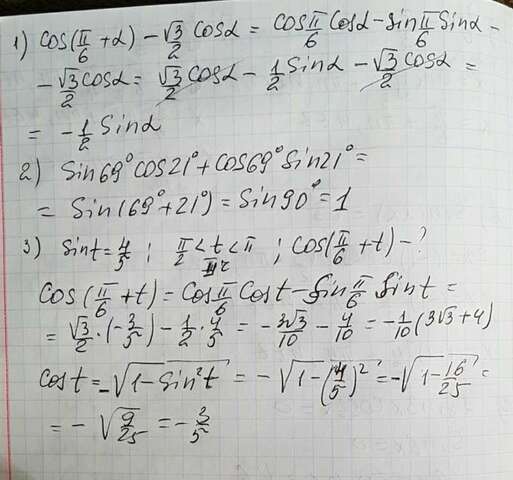 1) cos(π/6 + α) - √3/2 cosα = cos π/6 cosα - sin π/6 sinα -
- √3/2 cosα = √3/2 cosα - 1/2 sinα - √3/2 cosα =
= - 1/2 sinα
2) sin69° cos21° + cos69° sin21° =
= sin(69° + 21°) = sin90° = 1
3) sint = 4/5 ; π/2 < t < π ; cos(π/6 + t) - ?
II ч
cos(π/6 + t) = cos π/6 cost - sin π/6 sint =
= √3/2 · (-3/5) - 1/2 · 4/5 = - 3√3/10 - 4/10 = - 1/10 (3√3 + 4)
cost = - √(1 - sin²t) = - √(1 - (4/5)²) = - √(1 - 16/25) =
= - √(9/25) = - 3/5